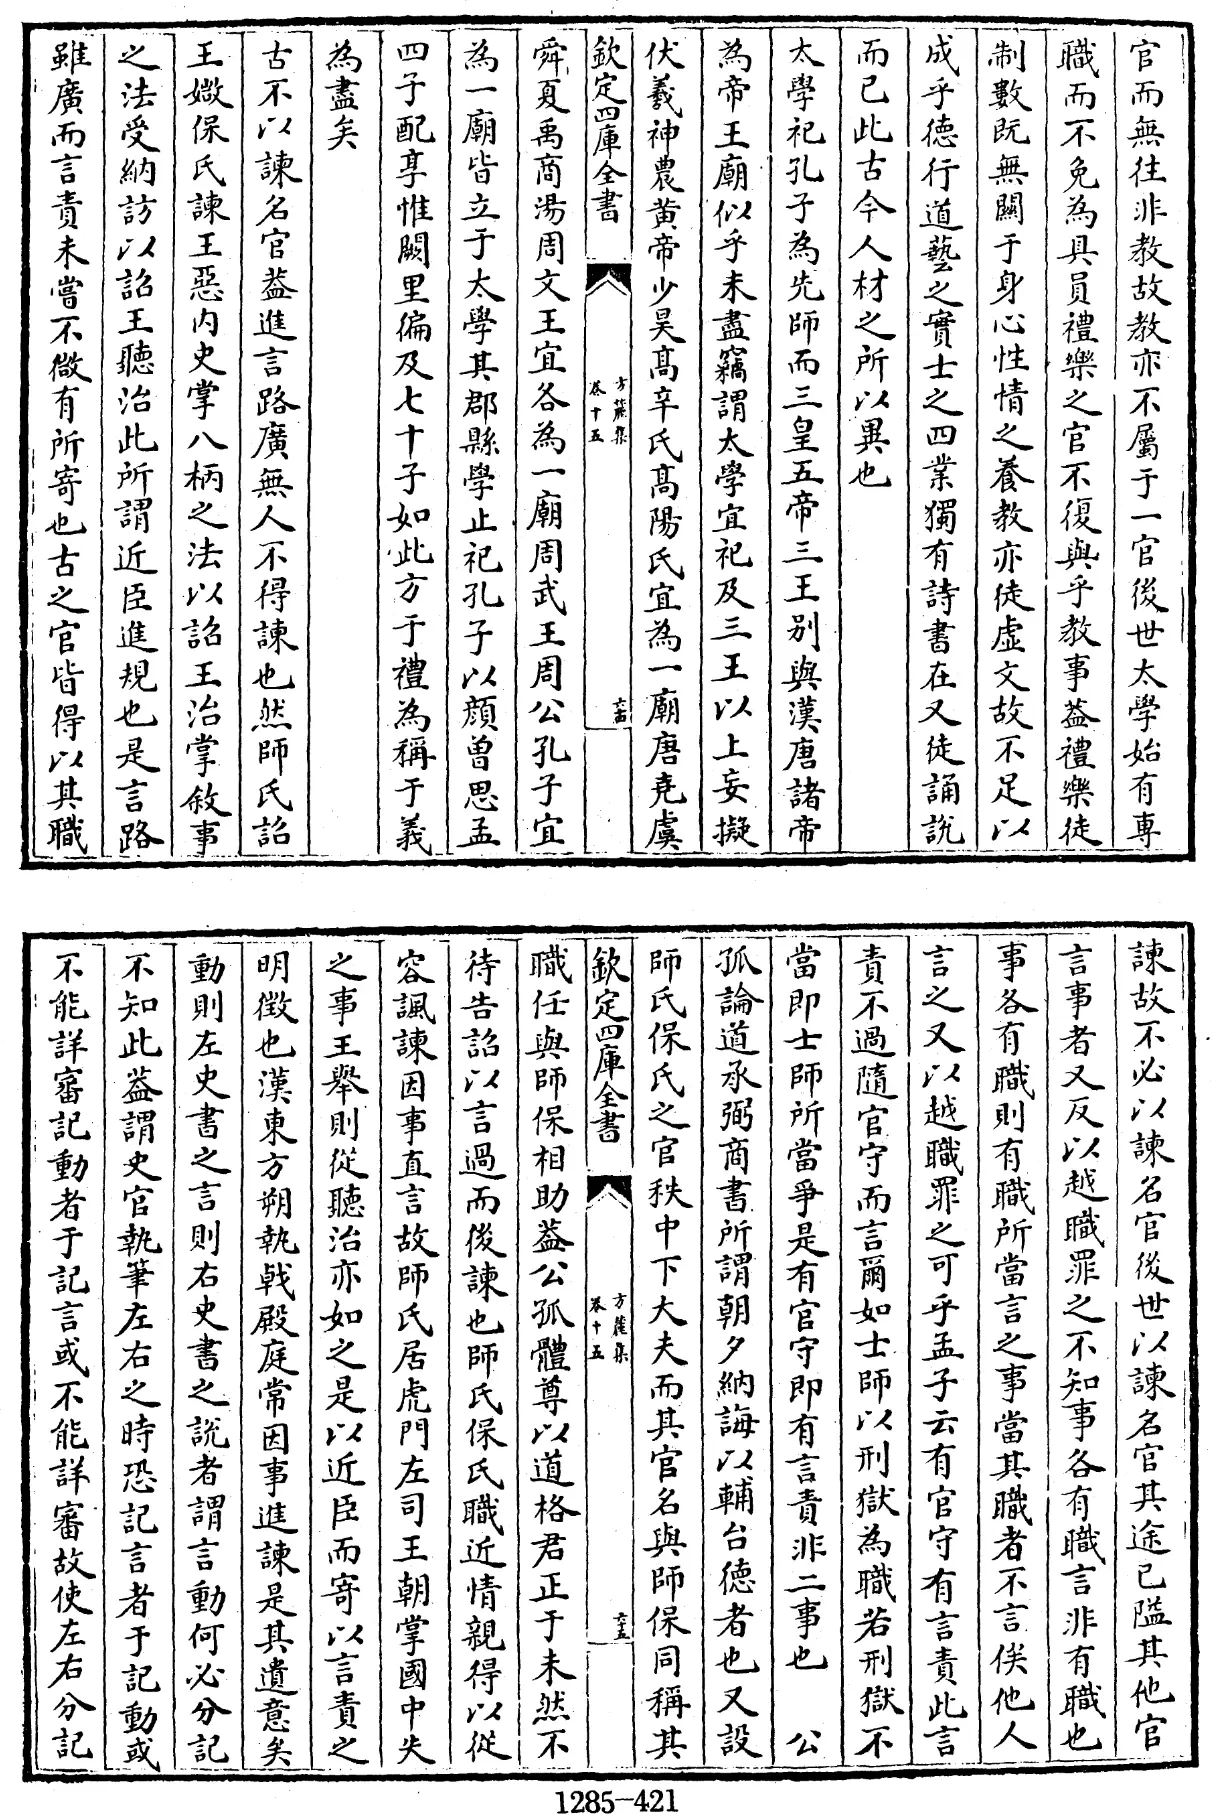 官而無往非教故教亦不屬于一官後世太學始有專
職而不免為具員禮樂之官不復與乎教事葢禮樂徒
制數既無關于身心性情之養教亦徒虛文故不足以
成乎德行道藝之實士之四業獨有詩書在又徒誦說
而已此古今人材之所以異也
太學祀孔子為先師而三皇五帝三王别與漢唐諸帝
為帝王廟似乎未盡竊謂太學宜祀及三王以上妄擬
伏羲神農黄帝少昊髙辛氏髙陽氏宜為一廟唐堯虞
欽定四庫全書
方麓集
卷十五
六十四
舜夏禹商湯周文王宜各為一廟周武王周公孔子宜
為一廟皆立于太學其郡縣學止祀孔子以顔曽思孟
四子配享惟闕里徧及七十子如此方于禮為稱于義
為盡矣
古不以諫名官葢進言路廣無人不得諫也然師氏詔
王媺保氏諫王惡内史掌八柄之法以詔王治掌敘事
之法受納訪以詔王聽治此所謂近臣進規也是言路
雖廣而言責未嘗不微有所寄也古之官皆得以其職
諫故不必以諫名官後世以諫名官其途已隘其他官
言事者又反以越職罪之不知事各有職言非有職也
事各有職則有職所當言之事當其職者不言俟他人
言之又以越職罪之可乎孟子云有官守有言責此言
責不過隨官守而言爾如士師以刑獄為職若刑獄不
當即士師所當爭是有官守即有言責非二事也　公
孤論道承弼商書所謂朝夕納誨以輔台德者也又設
師氏保氏之官秩中下大夫而其官名與師保同稱其
欽定四庫全書
方麓集
卷十五
六十五
職任與師保相助葢公孤體尊以道格君正于未然不
待告詔以言過而後諫也師氏保氏職近情親得以從
容諷諫因事直言故師氏居虎門左司王朝掌國中失
之事王舉則從聽治亦如之是以近臣而寄以言責之
明徵也漢東方朔執戟殿庭常因事進諫是其遺意矣
動則左史書之言則右史書之說者謂言動何必分記
不知此葢謂史官執筆左右之時恐記言者于記動或
不能詳審記動者于記言或不能詳審故使左右分記
1285-421